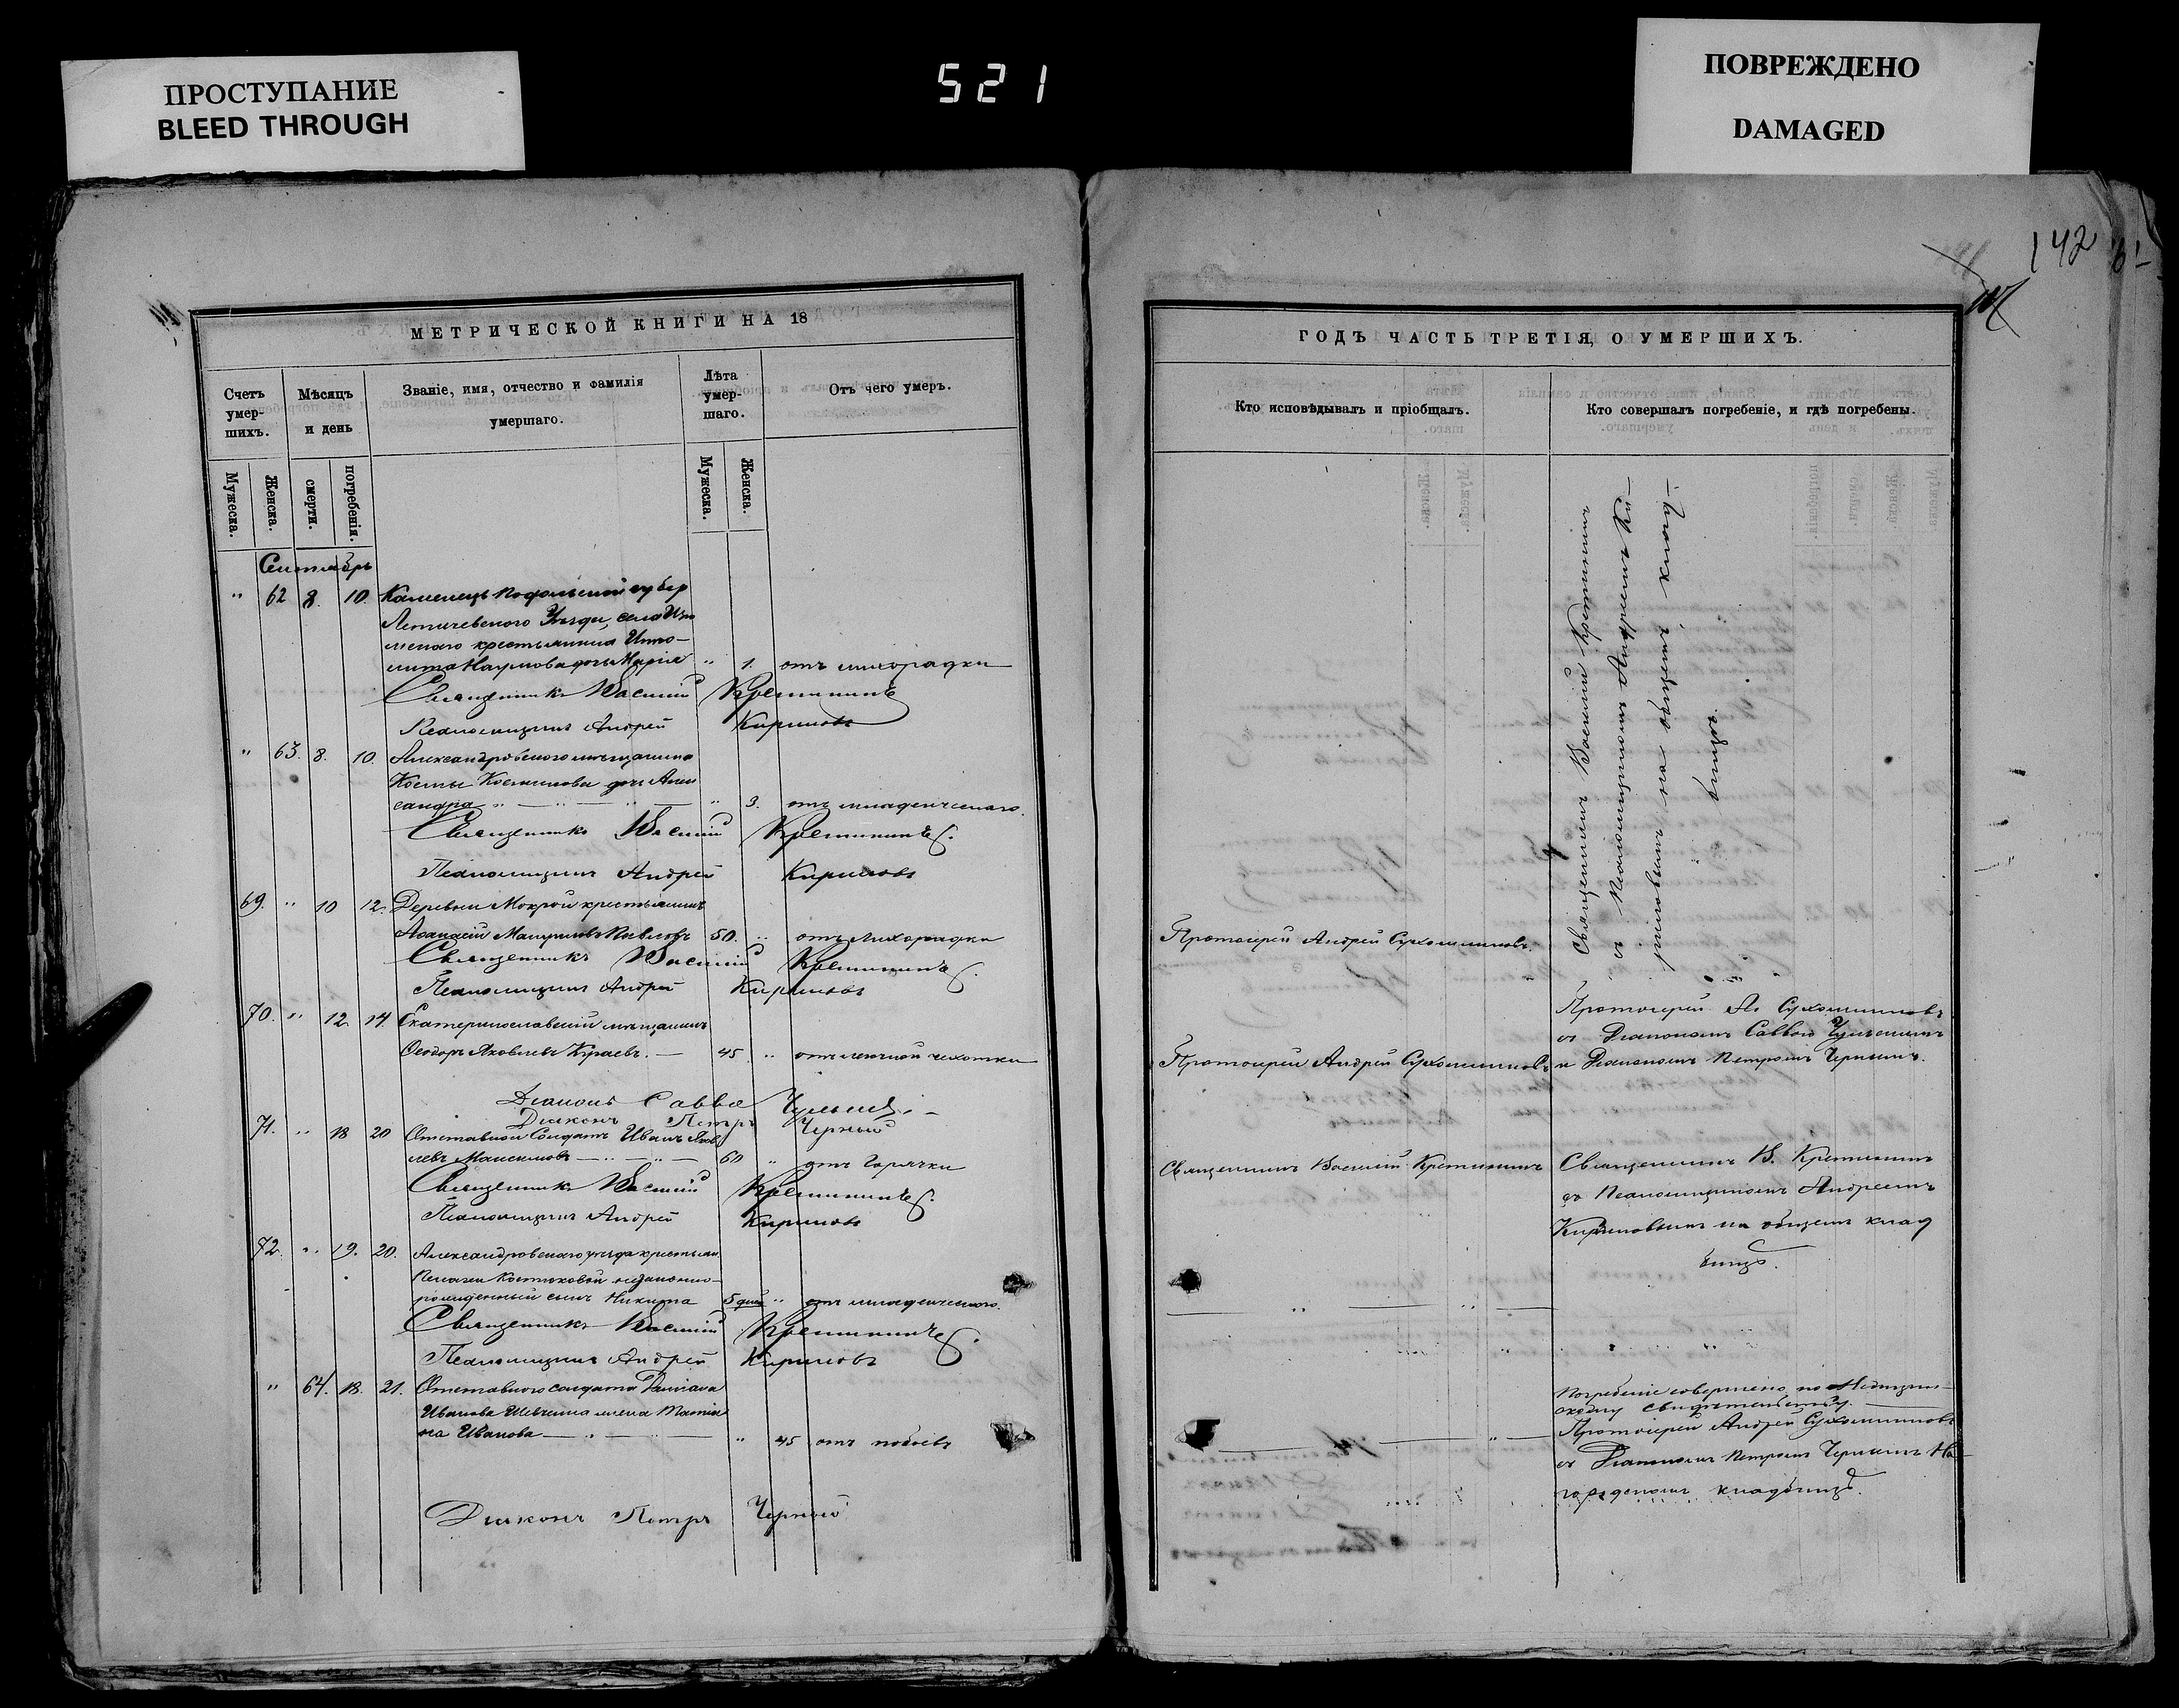 ПРОСТУПАНИЕ
BLEED THROUGH
521
ПОВРЕЖДЕНО
DAMAGED
142
МЕТРИЧЕСКОЙ КНИГИ НА 18
Счетъ умер-шихъ.
Мѣсяцъ и день
Званіе, имя, отчество и фамилія умершаго.
Лѣта умер-шаго.
Отъ чего умеръ.
Мужеска.
Женска.
смерти.
погребенія.
Мужеска.
Женска.
Сентябрь
" 62 8. 10. Каменецъ Подольской губер
Летичевского Уѣзда, села
крестьянина Иппо-
лита Наумова дочь Марія " 1. отъ лихорадки
Священникъ Василій Кремининъ
Псаломщикъ Андрей Кириловъ
" 63. 8. 10. Александровского мѣщанина
Космы дочь Алек
сандра " — " — " — " 3. отъ младенческаго.
Священникъ Василій Кремининъ
Псаломщикъ Андрей Кириловъ
69. " 10 12. Деревни Мокрой крестьянинъ
Аѳанасій 50. " отъ Лихорадки
Священникъ Василій Кремининъ
Псаломщикъ Андрей Кириловъ
70. " 12. 14. Екатеринославскій мѣщанинъ
Ѳеодоръ Яковлевъ Кираевъ. — 45 " отъ легочной чахотки
Діаконъ Савва
Діаконъ Петръ Черный
71. " 18 20 Отставной Солдатъ Иванъ Яков
левъ Максимовъ — " — 60 " отъ Горячки
Священникъ Василій Кремининъ
Псаломщикъ Андрей Кириловъ
72. " 19. 20. Александровского уѣзда крестьян.
Пелагеи Костюковой незаконно-
рожденный сынъ Никита 5 дней " отъ младенческого.
Священникъ Василій Кремининъ
Псаломщикъ Андрей Кириловъ
" 64. 18. 21. Отставного солдата
Иванова Шевченка жена Татія
на Иванова — " — " — " 45 отъ побоевъ
Діаконъ Петръ Черный
ГОДЪ ЧАСТЬ ТРЕТІЯ, О УМЕРШИХЪ.
Кто исповѣдывалъ и пріобщалъ.
Кто совершалъ погребеніе, и гдѣ погребены.
Священникъ Василій Кремининъ
съ Псаломщикомъ Андреемъ Ки-
риловымъ на общемъ клад-
бищѣ.
Протоіерей Андрей Сухомлиновъ.
Протоіерей Ан Сухомлиновъ
съ Діакономъ Саввою
Протоіерей Андрей Сухомлиновъ и Діакономъ Петромъ Чернымъ.
Священникъ Василій Кремининъ
Священникъ В. Кремининъ
съ Псаломщикомъ Андреемъ
Кириловымъ на общемъ клад
бищѣ.
Погребеніе совершено по Медицин-
скому свидѣтельству.
Протоіерей Андрей Сухомлиновъ
съ Діакономъ Петромъ Чернымъ На
городскомъ кладбищѣ.